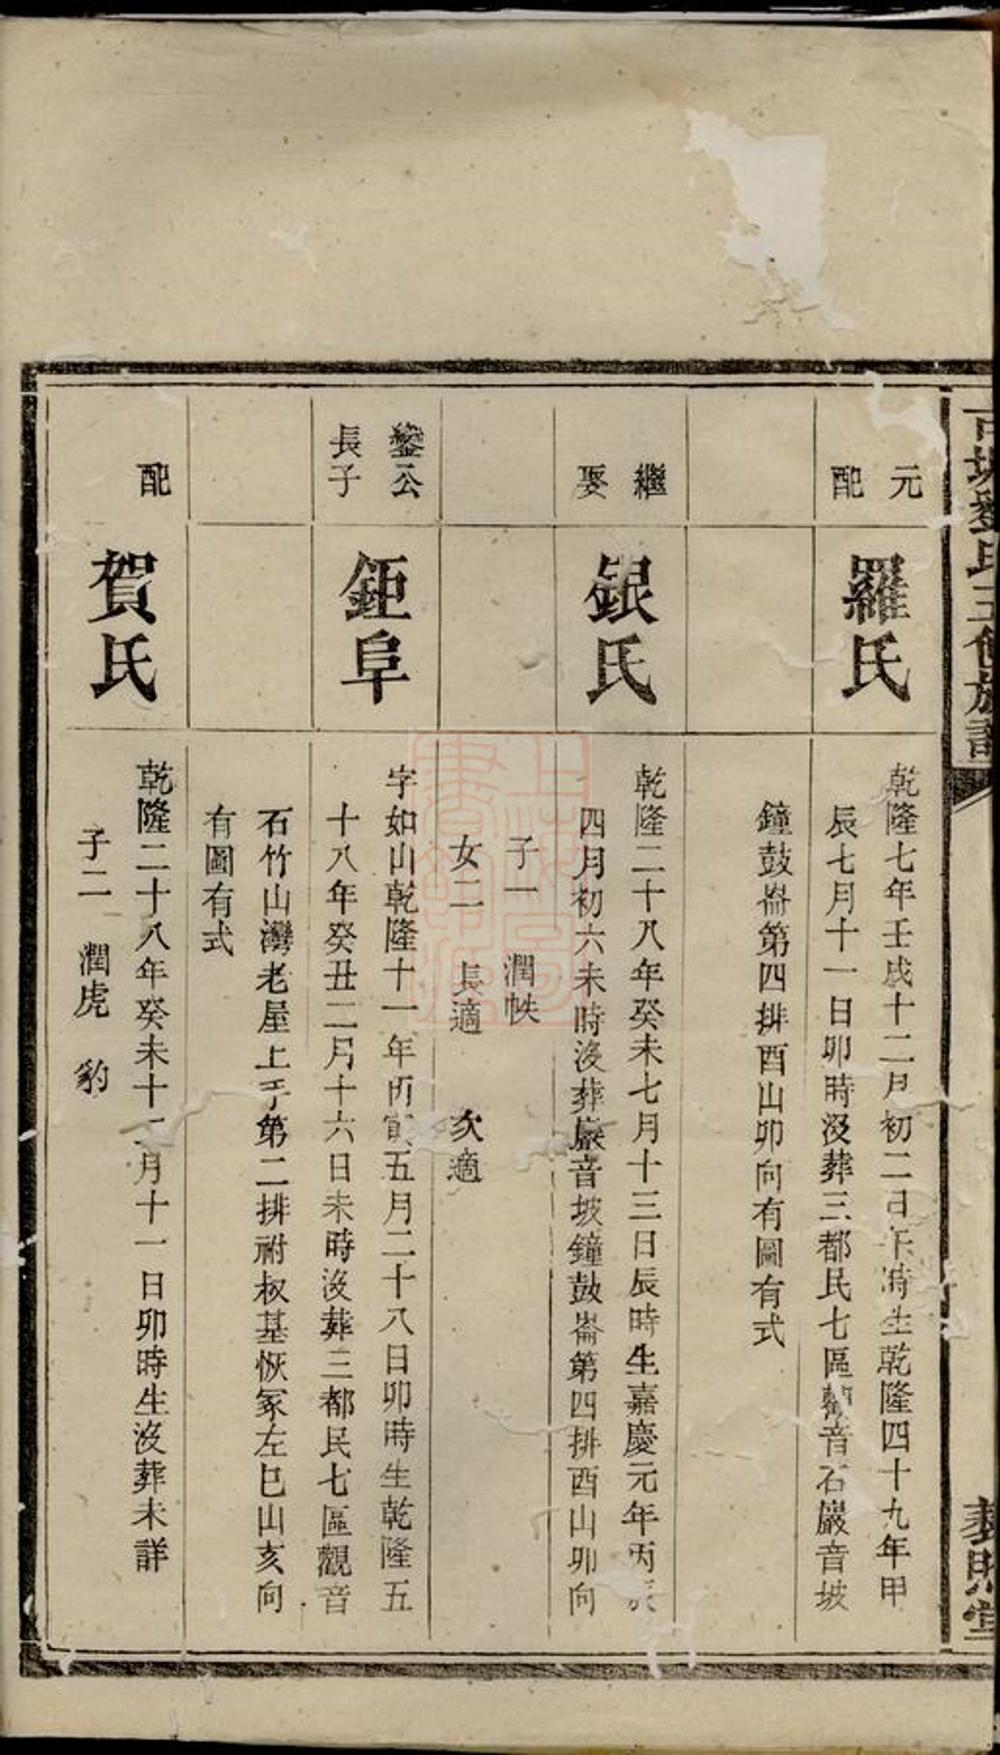 氏五修族譜
元配
羅氏
乾隆七年壬戌十二月初二日午時生乾隆四十九年甲
辰七月十一日卯時沒葬三都民七區觀音石巖音坡
鐘鼓崙第四排酉山卯向有圖有式
繼娶
銀氏
乾隆二十八年癸未七月十三日辰時生嘉慶元年丙辰
四月初六未時沒葬巖音坡鐘鼓崙第四排酉山卯向
子一 潤帙
女二 長適 次適
鑾公長子
鉅阜
字如山乾隆十一年丙寅五月二十八日卯時生乾隆五
十八年癸丑二月十六日未時沒葬三都民七區觀音
石竹山灣老屋上手第二排祔叔基恢冢左巳山亥向
有圖有式
配
賀氏
乾隆二十八年癸未十二月十一日卯時生沒葬未詳
子二 潤虎 豹